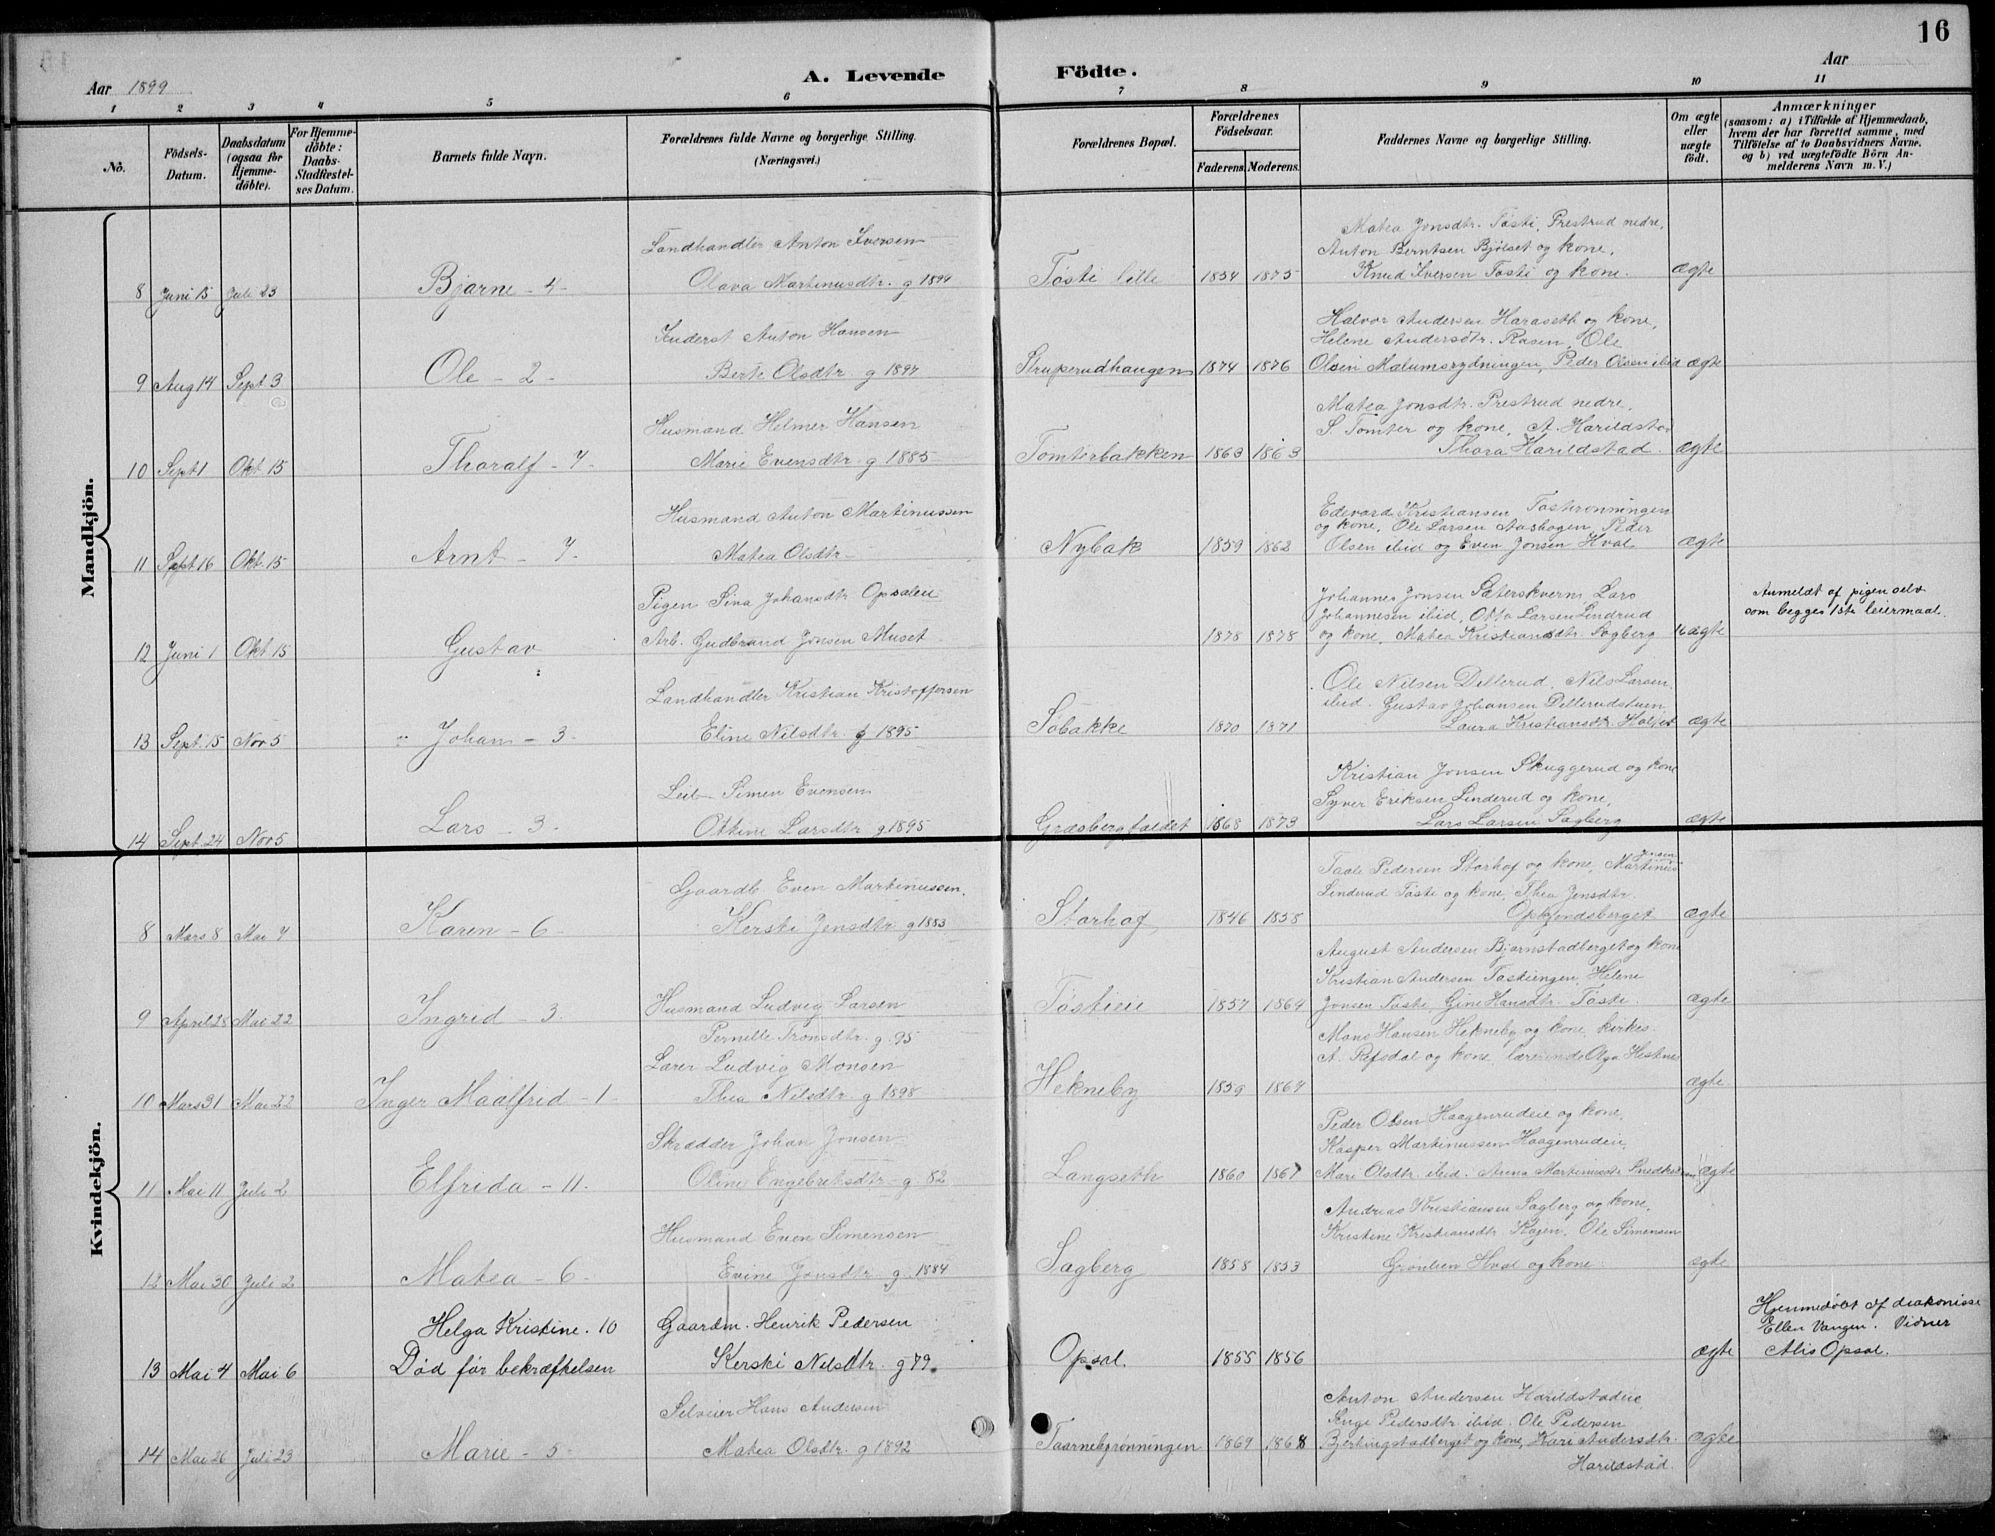 16
Aar 1899
A. Levende Födte.
Aar
1 2 3 4 5 6 7 8 9 10 11
No.
Födsels-Datum.
Daabsdatum (ogsaa for Hjemme-döbte).
For Hjemme-döbte: Daabs-Stadfæstel-ses Datum.
Barnets fulde Navn.
Forældrenes fulde Navne og borgerlige Stilling. (Næringsvei.)
Forældrenes Bopæl.
Forældrenes Födselsaar.
Faderens. Moderens.
Faddernes Navne og borgerlige Stilling.
Om ægte eller uægte födt.
Anmærkninger
(saasom: a) i Tilfælde af Hjemmedaab,
hvem der har forrettet samme, med
Tilföielse af to Daabsvidners Navne,
og b) ved uægtefödte Börn An-
melderens Navn m. V.)
Mandkjön.
Landhandler Anton Iversen
Matea Jonsdtr. Tøsti, Prestrud nedre,
Anton Berntsen Bjølset og kone,
8 Juni 15 Juli 23 Bjarne - 4 - Olava Martinusdtr. g 1894 Tøsti lille 1854 1875 Knud Iversen Tøsti og kone. ægte
Inderst Anton Hansen
Halvor Andersen Haraseth og kone,
Helene Andersdtr. Rosen, Ole
9 Aug 14 Sept 3 Ole - 2 - Berte Olsdtr g 1897 Struperudhaugen 1874 1876 Olsen Malumsrydningen, Peder Olsen ibid ægte
Husmand Helmer Hansen
Matea Jonsdtr. Prestrud nedre,
S. Tomter og kone, A. Harildstad
10 Sept 1 Okt 15 Thoralf - 7 - Marie Evensdtr g 1885 Tomterbakken 1863 1863 Thora Harildstad. ægte
Husmand Anton Martinussen
Edevard Kristiansen
og kone, Ole Larsen Aashagen, Peder
11 Sept 16 Okt. 15 Arnt - 7 - Matea Olsdtr Nybak 1859 1862 Olsen ibid og Even Jonsen Hval ægte
Pigen Sina Johansdtr Opsalen
Johannes Jonsen Sæterskvern, Lars
Johannesen ibid, Otto Larsen Lindrud
Anmeldt af pigen selv
som begges 1ste leiermaal.
12 Juni 1 Okt 15 Gustav Arb. Gudbrand Jonsen Muset 1878 1878 og kone, Matea Kristiansdtr. Sagberg uægte
Landhandler Kristian Kristoffersen
Ole Nilsen Dellerud, Nils Larsen
ibid. Gustav Johansen Dellerudstuen
13 Sept. 15 Nov 5 Johan - 3 - Eline Nilsdtr g 1895 Søbakke 1870 1871 Laura Kristiansdtr. ægte
Leil. Simen Evensen
Kristian Jonsen Skuggerud og kone
Syver Eriksen Linderud og kone,
14 Sept. 24 Nov 5 Lars - 3 - Ottine Larsdtr g 1895 Græsbergfaldet 1868 1873 Lars Larsen Sagberg ægte
Kvindekjön.
Gaardb. Even Martinussen.
Taale Pedersen Storhof og kone, Martinus Jensen
Linderud Tøsti og kone, Thea Jensdtr.
8 Mars 8 Mai 7 Karen - 6 - Kersti Jensdtr. g 1883 Storhof 1846 1858 ægte
August Andersen Bjørnstadberget og kone
Husmand Ludvig Larsen
Kristian Andersen Tøstiengen, Helene
9 April 28 Mai 22 Ingrid - 3. Pernille Tronsdtr. g. 95 Tøstieie 1857 1869 Jonsen Tøsti, Gine Hansdtr. Tøsti. ægte
Lærer Ludvig Monsen
Mons Hansen Hekneby og kone, kirkes.
A. Refsdal og kone, lærerinde Olga Hestnes
10 Mars 31 Mai 22 Inger Maalfrid - 1 - Thea Nilsdtr g 1898 Hekneby 1859 1869 ægte
Skrædder Johan Jonsen
Peder Olsen Haagenrudeie og kone,
Kasper Martinussen Haagenrudeie,
11 Mai 11 Juli 2 Elfrida - 11 - Oline Engebretsdtr - g 82 Langseth 1860 1867 Mari Olsdtr ibid. Anna Martinusdtr ægte
Husmand Even Simensen
Andreas Kristiansen Sagberg og kone,
Kristine Kristiansdtr Hagen, Ole Simensen
12 Mai 30 Juli 2 Matea - 6 - Evine Jonsdtr g. 1884 Sagberg 1858 1853 Grønlien Hval og kone. ægte
Helga Kristine. 10 Gaardm. Henrik Pedersen
Hjemmedøbt af diakonisse
Ellen Vangen. Vidner
13 Mai 4 Mai 6 Død før bekræftelsen Kersti Nilsdtr. g 79. Opsal. 1855 1856 ægte Alis Opsal.
Selveier Hans Andersen
Anton Andersen Harildstadeie,
Inge Pedersdtr ibid. Ole Pedersen
14 Mai 26 Juli 23 Marie - 5 - Matea Olsdtr. g 1892 Taarnebrønningen 1869 1868 Bjerkingstadberget og kone, Kari Andersdtr. ægte
Harildstad.